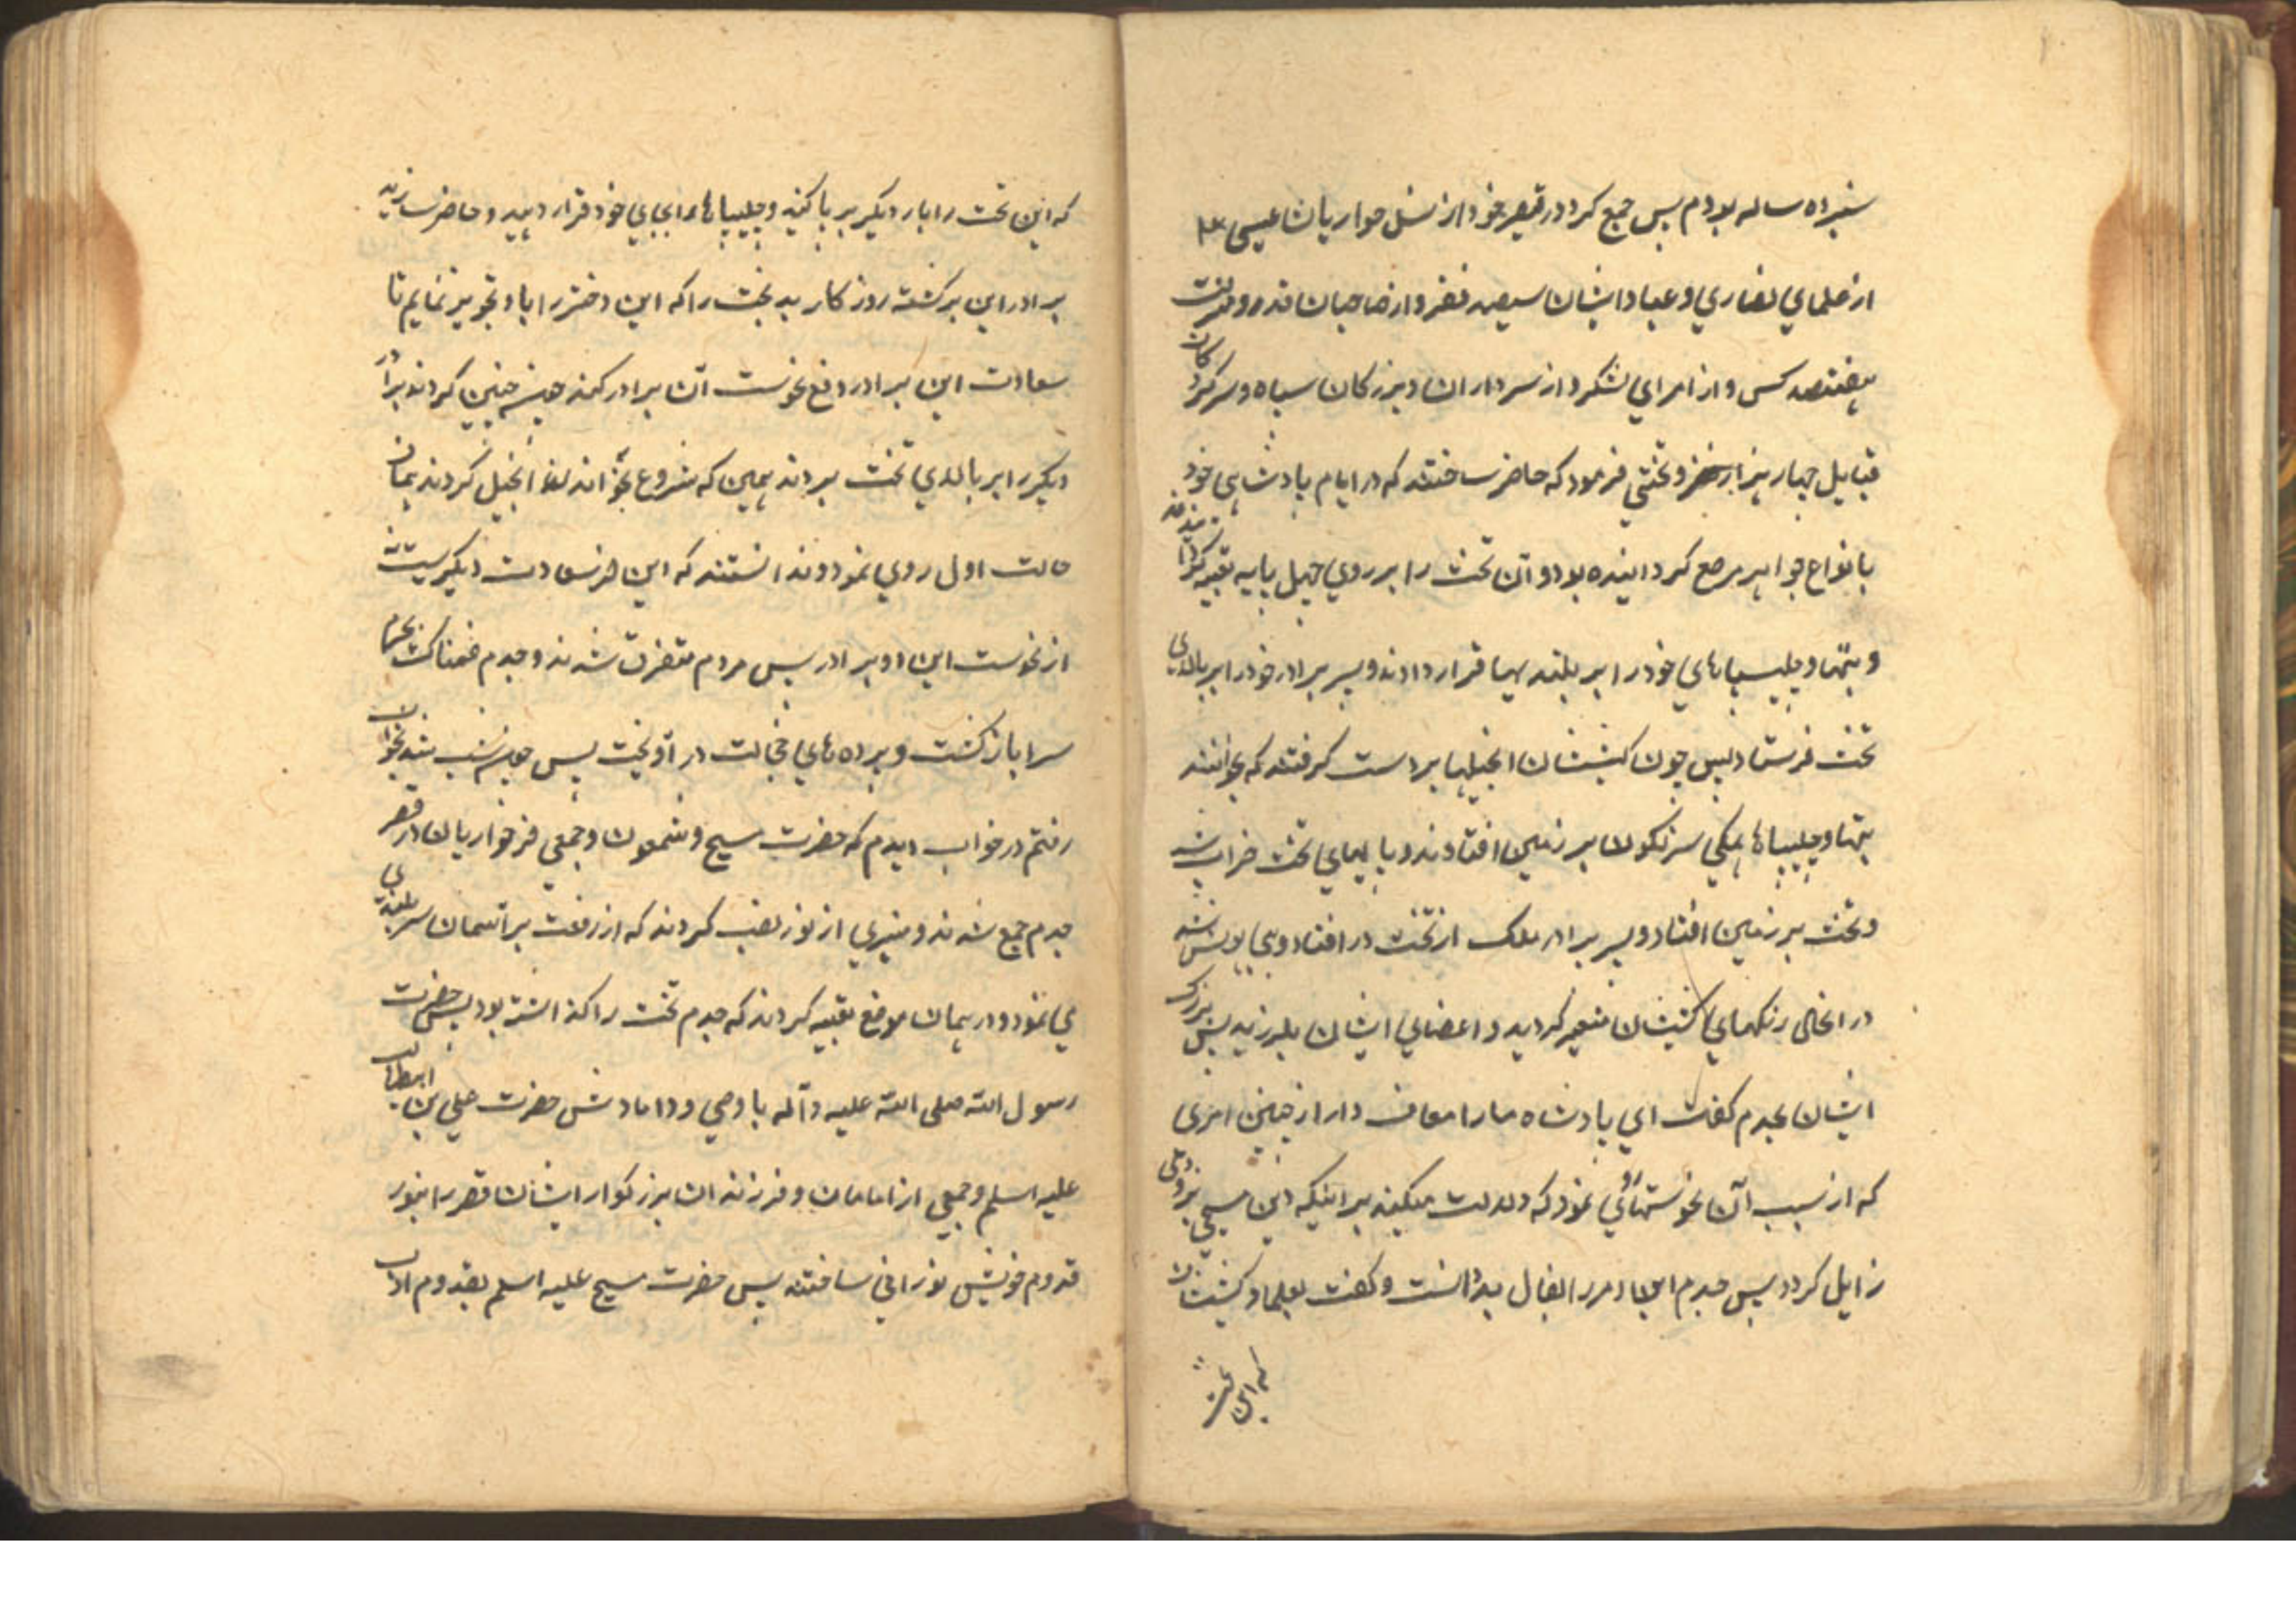 سیزده ساله بودم پس جمع کرد در قصر خود از نسل حواریان عیسی ع
از علمای نصاری و عباد ایشان سیصد نفر و از صاحبان قدر و منزلت
هفتصد کس و از امرای لشکر و از سرداران و بزرکان سپاه و سرکردکان
قبایل چهار هزار نفر و تختی فرمود که حاضر ساختند که در ایام پادشاهی خود
بانواع جواهر مرصع کردانیده بود و آن تخت را بر روی چهل پایه تعبیه کردانیدند
و بتها و چلیپاهای خود را بر بلندیها قرار دادند و پسر برادر خود را بر بالای
تخت فرستاد پس چون کشیشان انجیلها بر دست کرفتند که بخوانند
بتها و چلیپاها همکی سرنکون بر زمین افتادند و پایهای تخت خراب شد
و تخت بر زمین افتاد و پسر برادر ملک از تخت در افتاد و بیهوش شد
در انحال رنکهای کشیشان متغیر کردید و اعضای ایشان بلرزید پس بزرک
ایشان بجدم کفت ای پادشاه ما را معاف دار از چنین امری
که از سبب آن نحوستها روی نمود که دلالت میکند بر اینکه دین مسیحی بزودی
زایل کردد پس جدم این امر را بفال بد دانست و کفت بعلما و کشیشان
که این تخت
که این تخت را بار دیکر بر پا کنید و چلیپاها را بجای خود قرار دهید و حاضر سازید
برادر این برکشته روزکار بد بخت را که این دختر را باو تزویج نمایم تا
سعادت این برادر دفع نحوست آن برادر کند چون چنین کردند برادر
دیکر را بر بالای تخت بردند همین که شروع بخواندن انجیل کردند همان
حالت اول روی نمود و ندانستند که این از سعادت دیکریست نه
از نحوست این دو برادر پس مردم متفرق شدند و جدم غمناک بحرم
سرا بازکشت و پرده های خجالت در آویخت پس چون شب شد بخواب
رفتم در خواب دیدم که حضرت مسیح و شمعون و جمعی از حواریان در قصر
جدم جمع شدند و منبری از نور نصب کردند که از رفعت بر آسمان سر بلندی
می نمود و در همان موضع تعبیه کردند که جدم تخت را کذاشته بود پس حضرت
رسول الله صلی الله علیه وآله با وصی و دامادش حضرت علی بن ابیطالب
علیه اسلم و جمعی از امامان و فرزندان بزرکوار ایشان قصر را بنور
قدوم خویش نورانی ساختند پس حضرت مسیح علیه اسلم بقدوم ادب